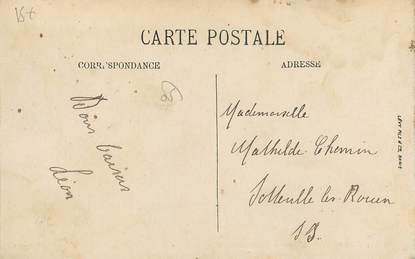 15+
CARTE POSTALE
CORR'SPONDANCE
ADRESSE
Bons baisers
Léon
Mademoiselle
Mathilde Chemin
Sotteville les Rouen
S I
LÉVY FILS & CIE PARIS